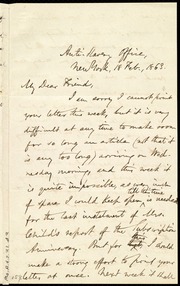 Anti-Slavery Office,
New York, 18 Feb., 1862.
My Dear Friend,
I am sorry I cannot print
your letter this week, but it is very
difficult at any time to make room
for so long an article (not that it
is any too long) arriving on Wed-
nesday morning, and this week it
is quite impossible, as every inch
of space I could keep open till this time is needed
for the last instalment of Mrs.
Child's report of the subscription
Anniversary. But for this I should
make a strong effort to print your
letter at once. Next week it shall